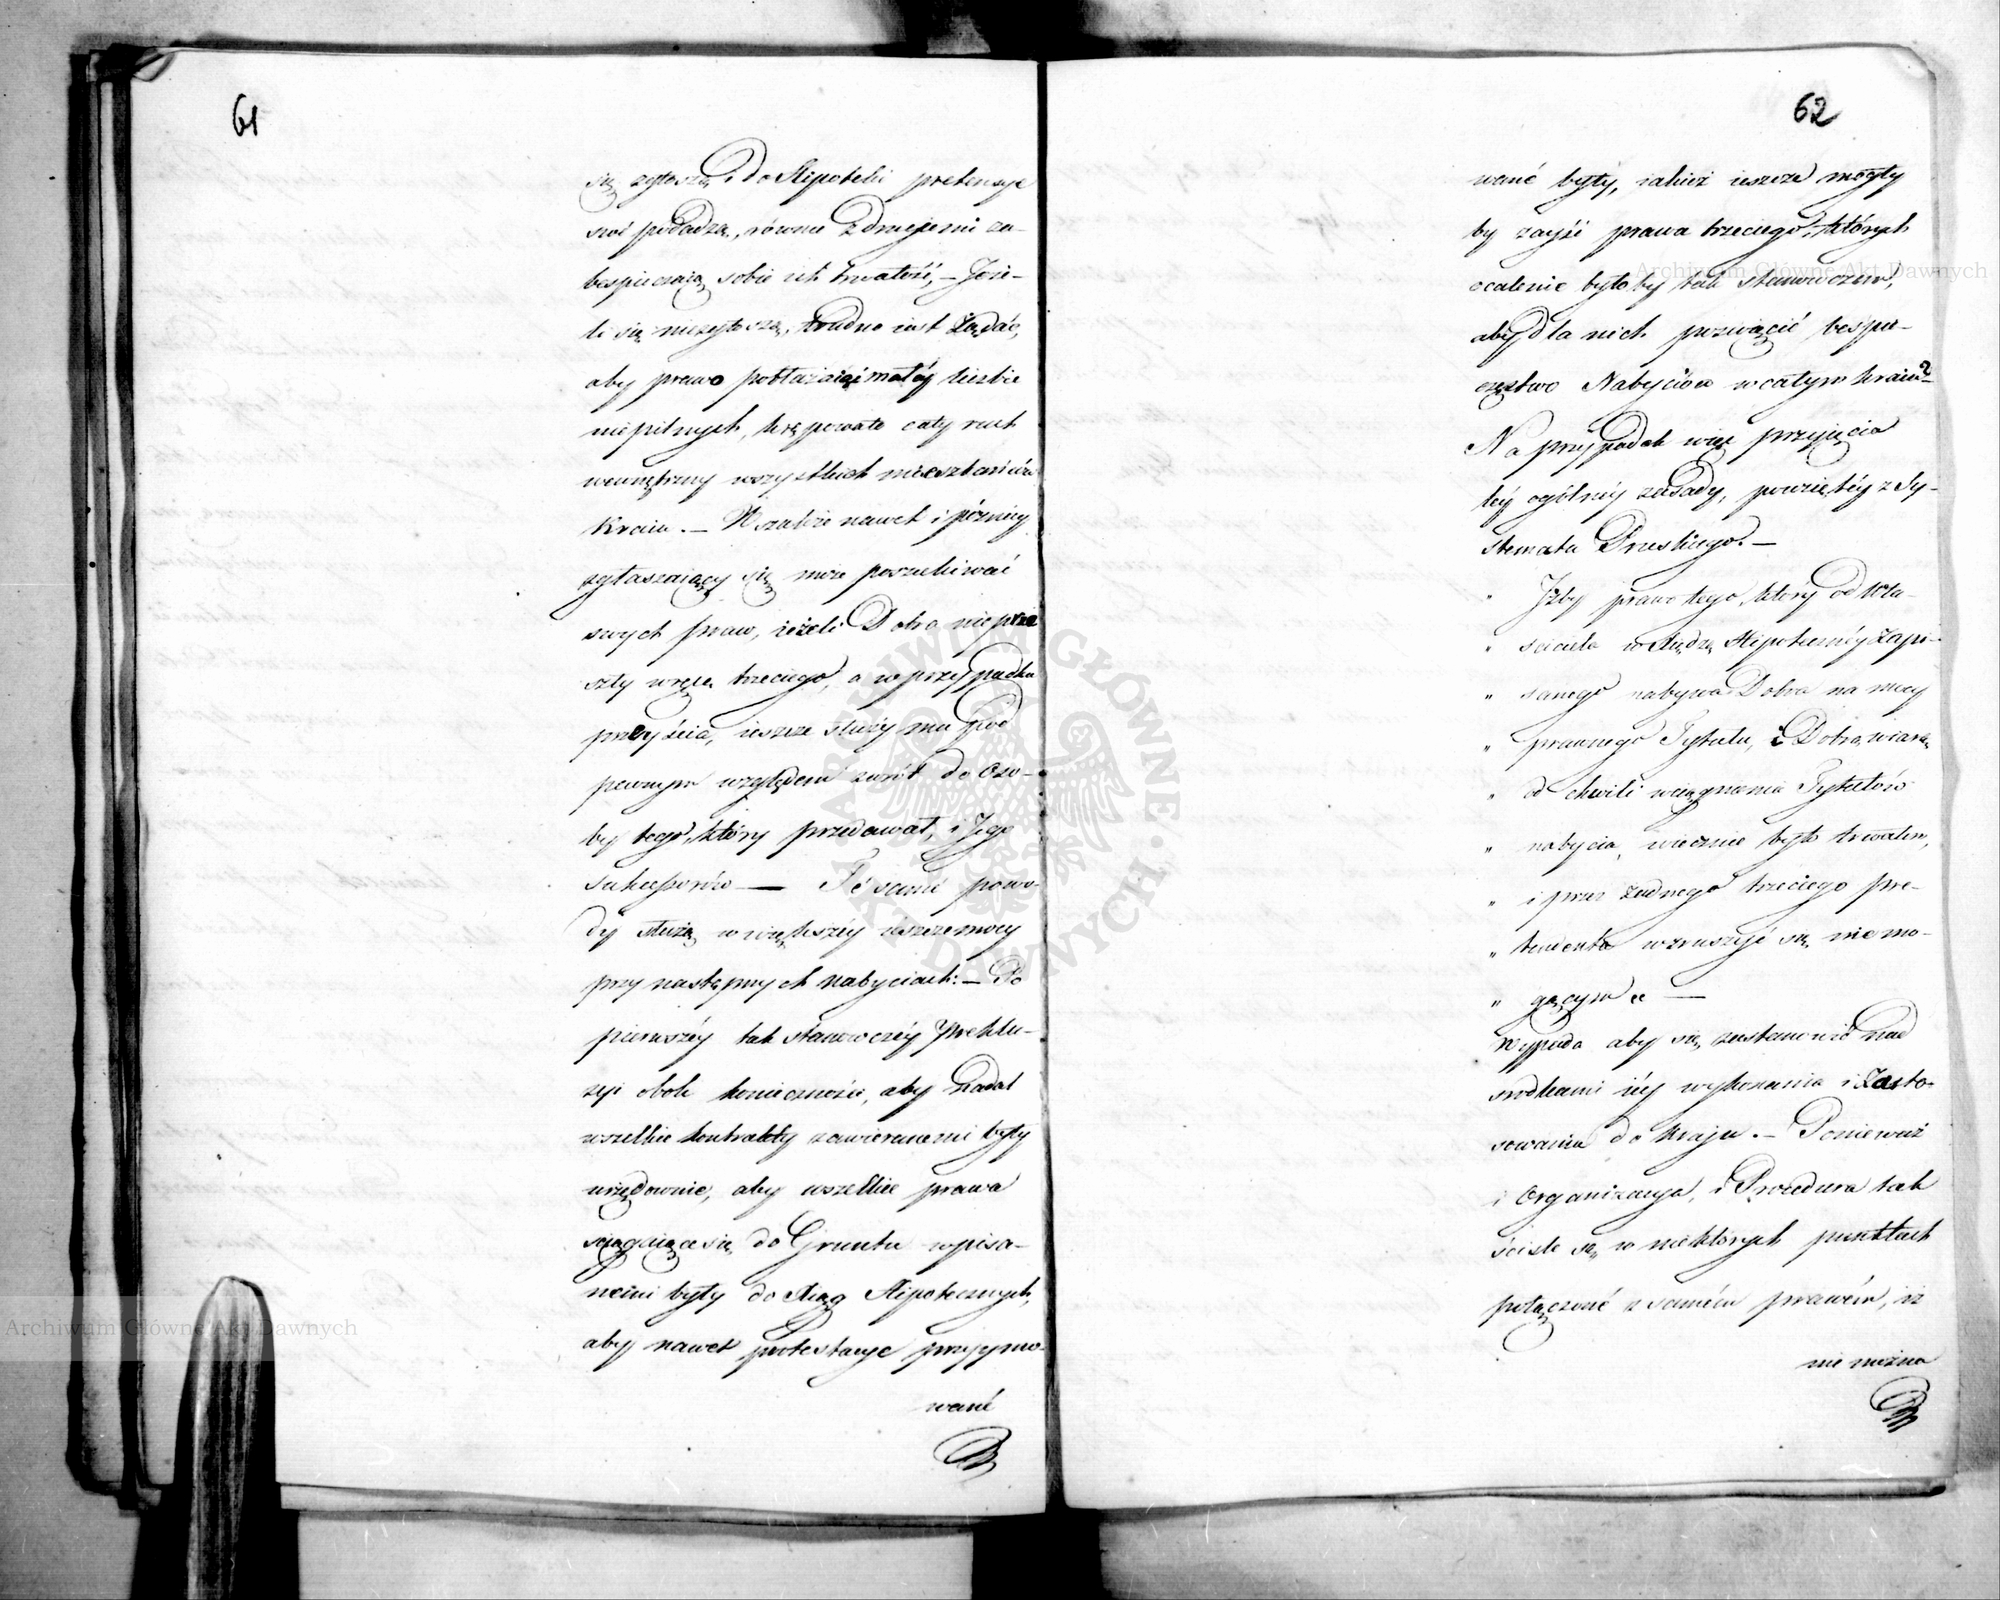 61
się zgłoszą i do Hipoteki pretensye
swe podadzą, równie z drugiemi za-
bespieczaią sobie ich trwałość, — Jeże-
li się niezgłoszą, trudno iest żądać,
aby prawo pobłażaiąc małéy liczbie
niepilnych, krępowało cały ruch
wewnętrzny wszystkich mieszkańców
Kraiu. — Wszakże nawet i późniéy
zgłaszaiący się może poszukiwać
swych praw, ieżeli Dobra nie prze
szły w ręce trzeciego, a w przypadku
przeyścia, ieszcze służy mu pod
pewnym względem zwrót do Oso-
by tego, który przedawał, i Jego
Sukcessorów — Té samé powo-
dy służą w większéy ieszcze mocy
przy następnych nabyciach: — Po
pierwszéy tak stanowczéy Preklu-
zyi obok konieczności, aby nadal
wszelkie kontrakty zawieranemi były
urzędownie, aby wszelkie prawa
sciągaiące się do Gruntu wpisa-
nemi były do Xiąg Hipotecznych,
aby nawet protestacye przyymo-
wané
62
wané były, iakież ieszcze mogły
by zayść prawa trzeciego, których
ocalenie byłoby tak stanowczem,
aby dla nich poswięcić bespie-
czeństwo Nabyciów w całym kraiu?
Na przypadek więc przyięcia
téy ogólnéy zasady, powziętéy z Sy-
stematu Pruskiego. —
" Jżby prawo tego, który od Wła-
" sciciela w Xiędze Hipotecznéy zapi-
" sanego nabywa Dobra na mocy
" prawnego Tytułu, i z Dobrą wiarą,
" od chwili wciągnienia Tytułów
" nabycia, wiecznie było trwałem,
" i przez żadnego trzeciego pre-
" tendenta wzruszyć się nie mo-
" gącym " —
Wypada aby się zastanowić nad
srodkami iéy wykonania i zasto-
sowania do kraju. — Ponieważ
i Organizacya, i Procedura tak
ściśle są w niektórych punktach
połączoné z samém prawém, iż
nie można